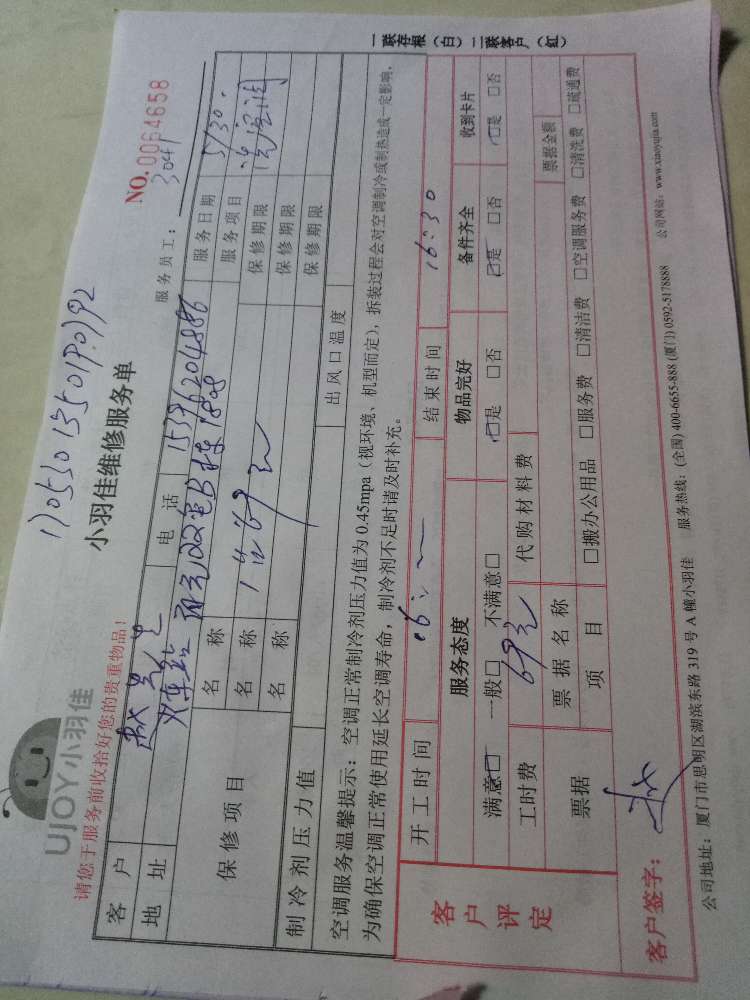 UJOY小羽佳
1)0553013501P01P2
小羽佳维修服务单
NO.0064658
请您于服务前收拾好您的贵重物品！
服务员工：3041
客户 电话 15396204886 服务日期 5/30.
地址 火车站 B栋1808 服务项目 洗空调
保修项目 名称 保修期限
名称 1台69元 保修期限
名称 保修期限
制冷剂压力值 出风口温度
空调服务温馨提示：空调正常制冷剂压力值为0.45mpa（视环境、机型而定），拆装过程会对空调制冷或制热造成一定影响，
为确保空调正常使用延长空调寿命，制冷剂不足时请及时补充。
一联存根（白）二联客户（红）
客户评定
开工时间 结束时间 16:30
服务态度 物品完好 备件齐全 收到卡片
满意□ 一般□ 不满意□ □是 □否 □是 □否 □是 □否
工时费 69元 代购材料费 票据金额
票据 票据名称
项目 □搬办公用品 □服务费 □清洁费 □空调服务费 □清洗费 □疏通费
客户签字：
公司地址：厦门市思明区湖滨东路319号A幢小羽佳 服务热线：(全国) 400-6655-888 (厦门) 0592-5178888 公司网站：www.xiaoyujia.com